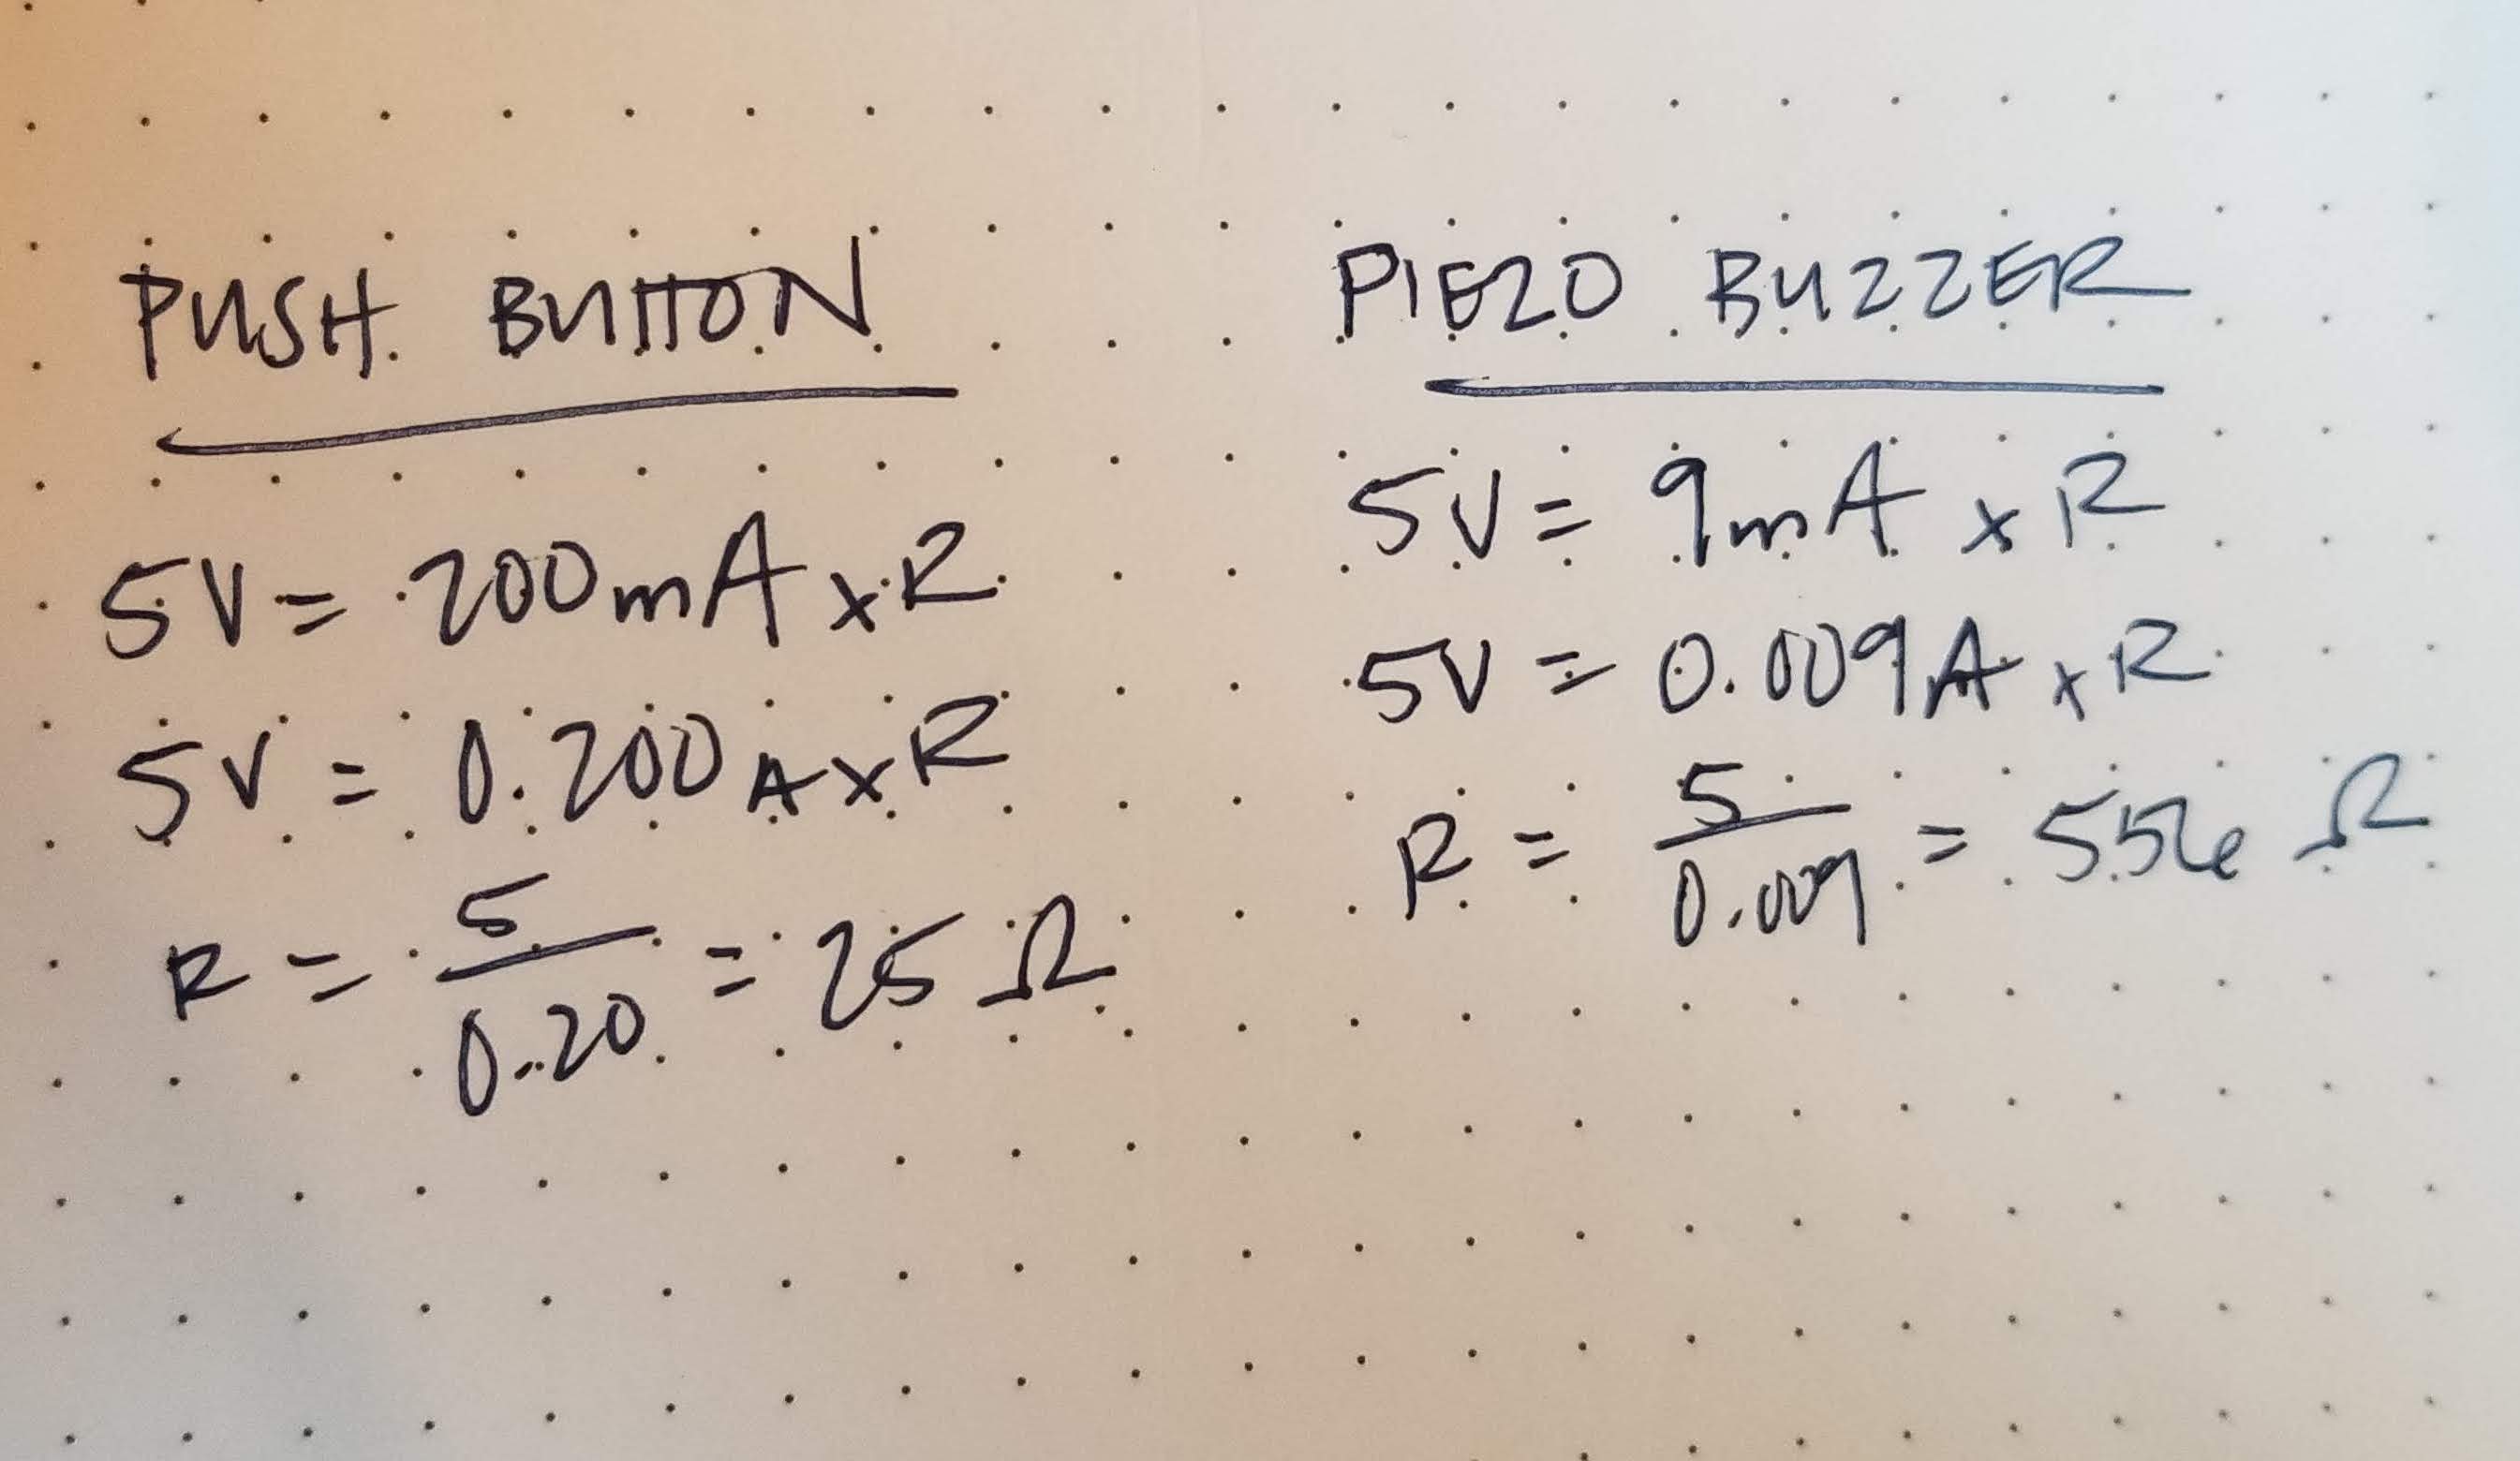 PUSH BUTTON
5V = 200mA x R
5V = 0.200 A x R
R = 5/0.20 = 25 Ω
PIEZO BUZZER
5V = 9mA x R
5V = 0.009A x R
R = 5/0.009 = 556 Ω